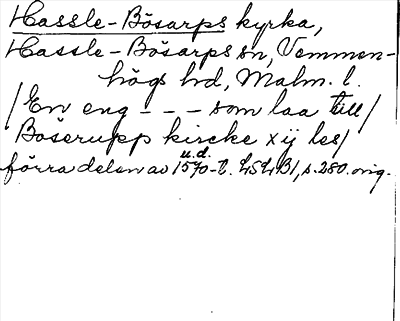 Hassle-Bösarps kyrka,
Hassle-Bösarps sn, Vemmen-
högs hd, Malm. l.
/En eng - - - som laa till/
Böserupp kircke x ij les/
u.d.
förra delen av 1570-t. LSLB1, s. 280. orig.